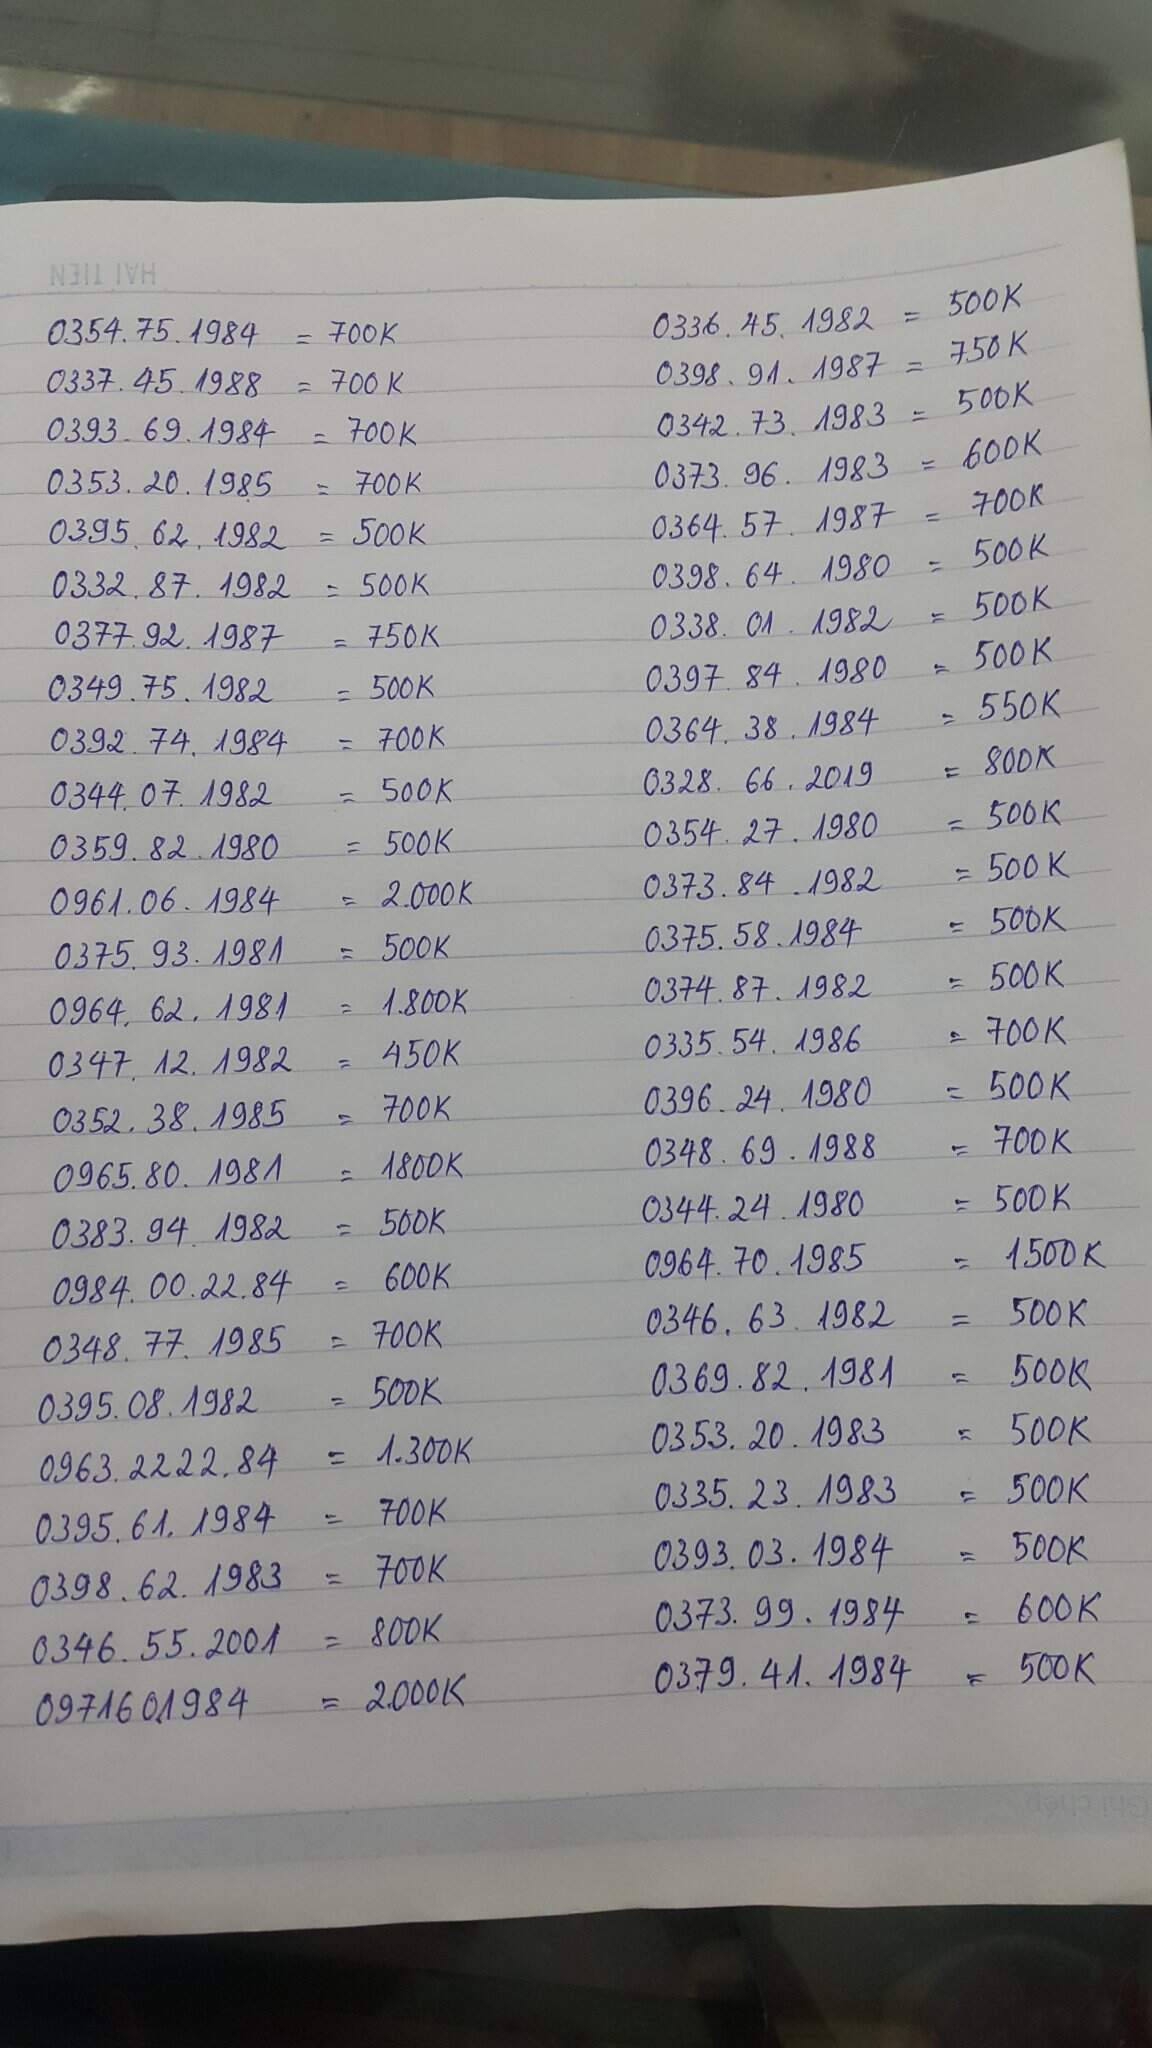 HẢI TIẾN
0354.75.1984 = 700K
0337.45.1988 = 700K
0393.69.1984 = 700K
0353.20.1985 = 700K
0395.62.1982 = 500K
0332.87.1982 = 500K
0377.92.1987 = 750K
0349.75.1982 = 500K
0392.74.1984 = 700K
0344.07.1982 = 500K
0359.82.1980 = 500K
0961.06.1984 = 2.000K
0375.93.1981 = 500K
0964.62.1981 = 1.800K
0347.12.1982 = 450K
0352.38.1985 = 700K
0965.80.1981 = 1800K
0383.94.1982 = 500K
0984.00.22.84 = 600K
0348.77.1985 = 700K
0395.08.1982 = 500K
0963.2222.84 = 1.300K
0395.61.1984 = 700K
0398.62.1983 = 700K
0346.55.2001 = 800K
0971601984 = 2.000K
0336.45.1982 = 500K
0398.91.1987 = 750K
0342.73.1983 = 500K
0373.96.1983 = 600K
0364.57.1987 = 700K
0398.64.1980 = 500K
0338.01.1982 = 500K
0397.84.1980 = 500K
0364.38.1984 = 550K
0328.66.2019 = 800K
0354.27.1980 = 500K
0373.84.1982 = 500K
0375.58.1984 = 500K
0374.87.1982 = 500K
0335.54.1986 = 700K
0396.24.1980 = 500K
0348.69.1988 = 700K
0344.24.1980 = 500K
0964.70.1985 = 1500K
0346.63.1982 = 500K
0369.82.1981 = 500K
0353.20.1983 = 500K
0335.23.1983 = 500K
0393.03.1984 = 500K
0373.99.1984 = 600K
0379.41.1984 = 500K
Ghi chép